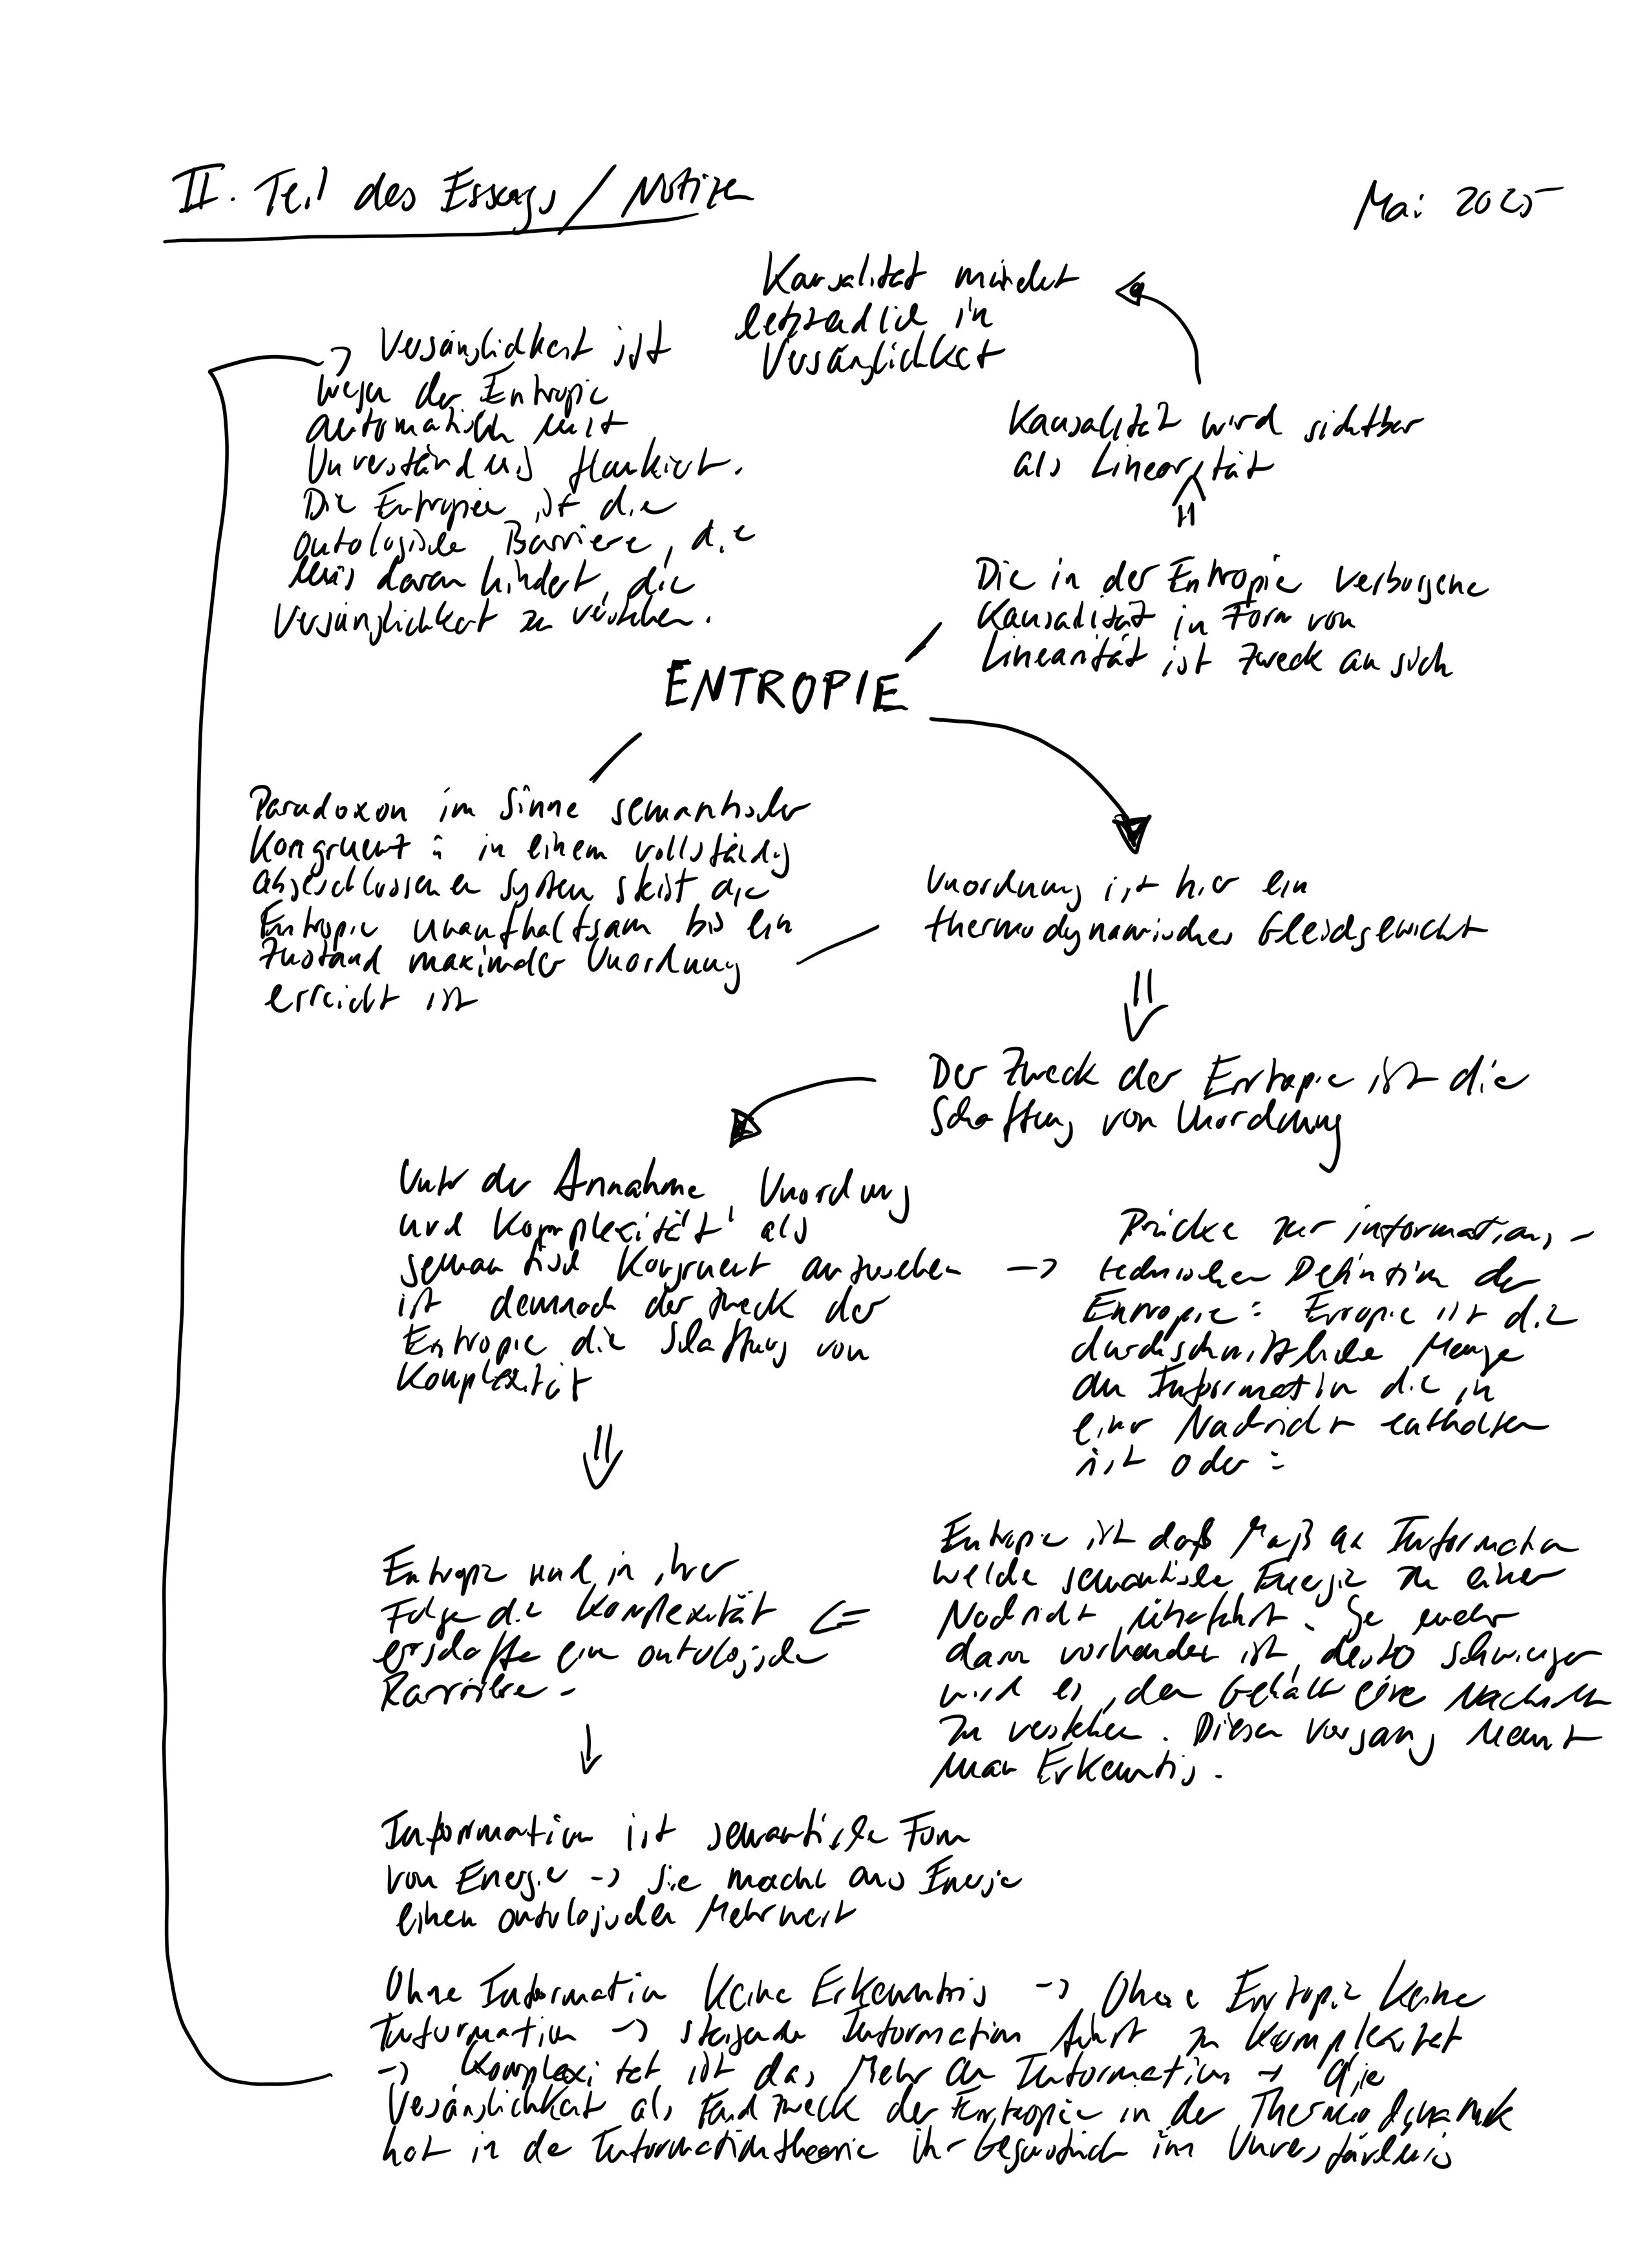 II. Teil des Essays / Notizen
Mai 2025
Kausalität mündet
letztendlich in
Vergänglichkeit
-> Vergänglichkeit ist
wegen der Entropie
automatisch mit
Unverständnis flankiert.
Die Entropie ist die
ontologische Barriere, die
uns daran hindert, die
Vergänglichkeit zu verstehen.
Kausalität wird sichtbar
als Linearität
Die in der Entropie verborgene
Kausalität in Form von
Linearität ist Zweck an sich
ENTROPIE
Paradoxon im Sinne semantischer
Kongruenz: in einem vollständig
abgeschlossenen System steigt die
Entropie unaufhaltsam bis ein
Zustand maximaler Unordnung
erreicht ist
Unordnung ist hier ein
thermodynamisches Gleichgewicht
Der Zweck der Entropie ist die
Schaffung von Unordnung
Unter der Annahme, Unordnung
und Komplexität als
semantisch Kongruent anzusehen ->
ist demnach der Zweck der
Entropie die Schaffung von
Komplexität
Brücke zur informations-
technischen Definition der
Entropie: Entropie ist die
durchschnittliche Menge
an Information die in
einer Nachricht enthalten
ist oder:
Entropie ist daß Maß an Information
welche semantische Energie zu einer
Nachricht überführt. Je mehr
davon vorhanden ist, desto schwieriger
wird es, den Gehalt eine Nachricht
zu verstehen. Diesen Vorgang nennt
man Erkenntis.
Entropie und in ihrer
Folge die Komplexität <=
erschaffe eine ontologische
Barriere.
Information ist semantische Form
von Energie -> Sie macht aus Energie
einen ontologischen Mehrwert
Ohne Information keine Erkenntnis -> Ohne Entropie keine
Information -> steigende Information führt zu Komplexität
-> Komplexität ist das Mehr an Information -> die
Vergänglichkeit als Endzweck der Entropie in der Thermodynamik
hat in der Informationtheorie ihr Gegenstück im Unverständnis